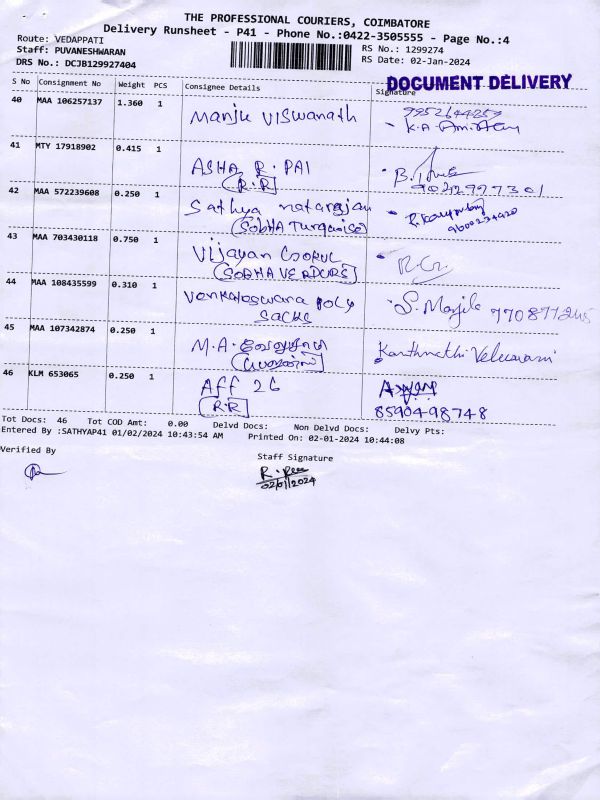 THE PROFESSIONAL COURIERS, COIMBATORE
Delivery Runsheet - P41 - Phone No.:0422-3505555 - Page No.:4
Route: VEDAPPATI
Staff: PUVANESHWARAN
RS No.: 1299274
DRS No.: DCJB129927404
RS Date: 02-Jan-2024
DOCUMENT DELIVERY
S No Consignment No Weight PCS Consignee Details Signature
40 MAA 106257137 1.360 1 Manju Viswanath 9952644259
41 MTY 17918902 0.415 1 ASHA R. PAI
(R.R) 9042997301
42 MAA 572239608 0.250 1 Sathya natarajan
(Sobha Turquoise) 9600234920
43 MAA 703430118 0.750 1 Vijayan Gokul R.G.
(SOBHA VERDURE)
44 MAA 108435599 0.310 1 Venkateswara Poly
Sacks
45 MAA 107342874 0.250 1 M.A.
46 KLM 653065 0.250 1 Aff 26
(R.R) 8590498748
Tot Docs: 46 Tot COD Amt: 0.00 Delvd Docs: Non Delvd Docs: Delvy Pts:
Entered By :SATHYAP41 01/02/2024 10:43:54 AM Printed On: 02-01-2024 10:44:08
Verified By Staff Signature
02/01/2024